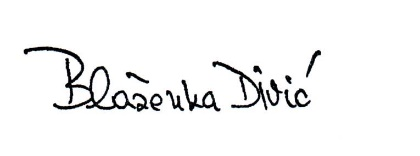 Blaženka Divić